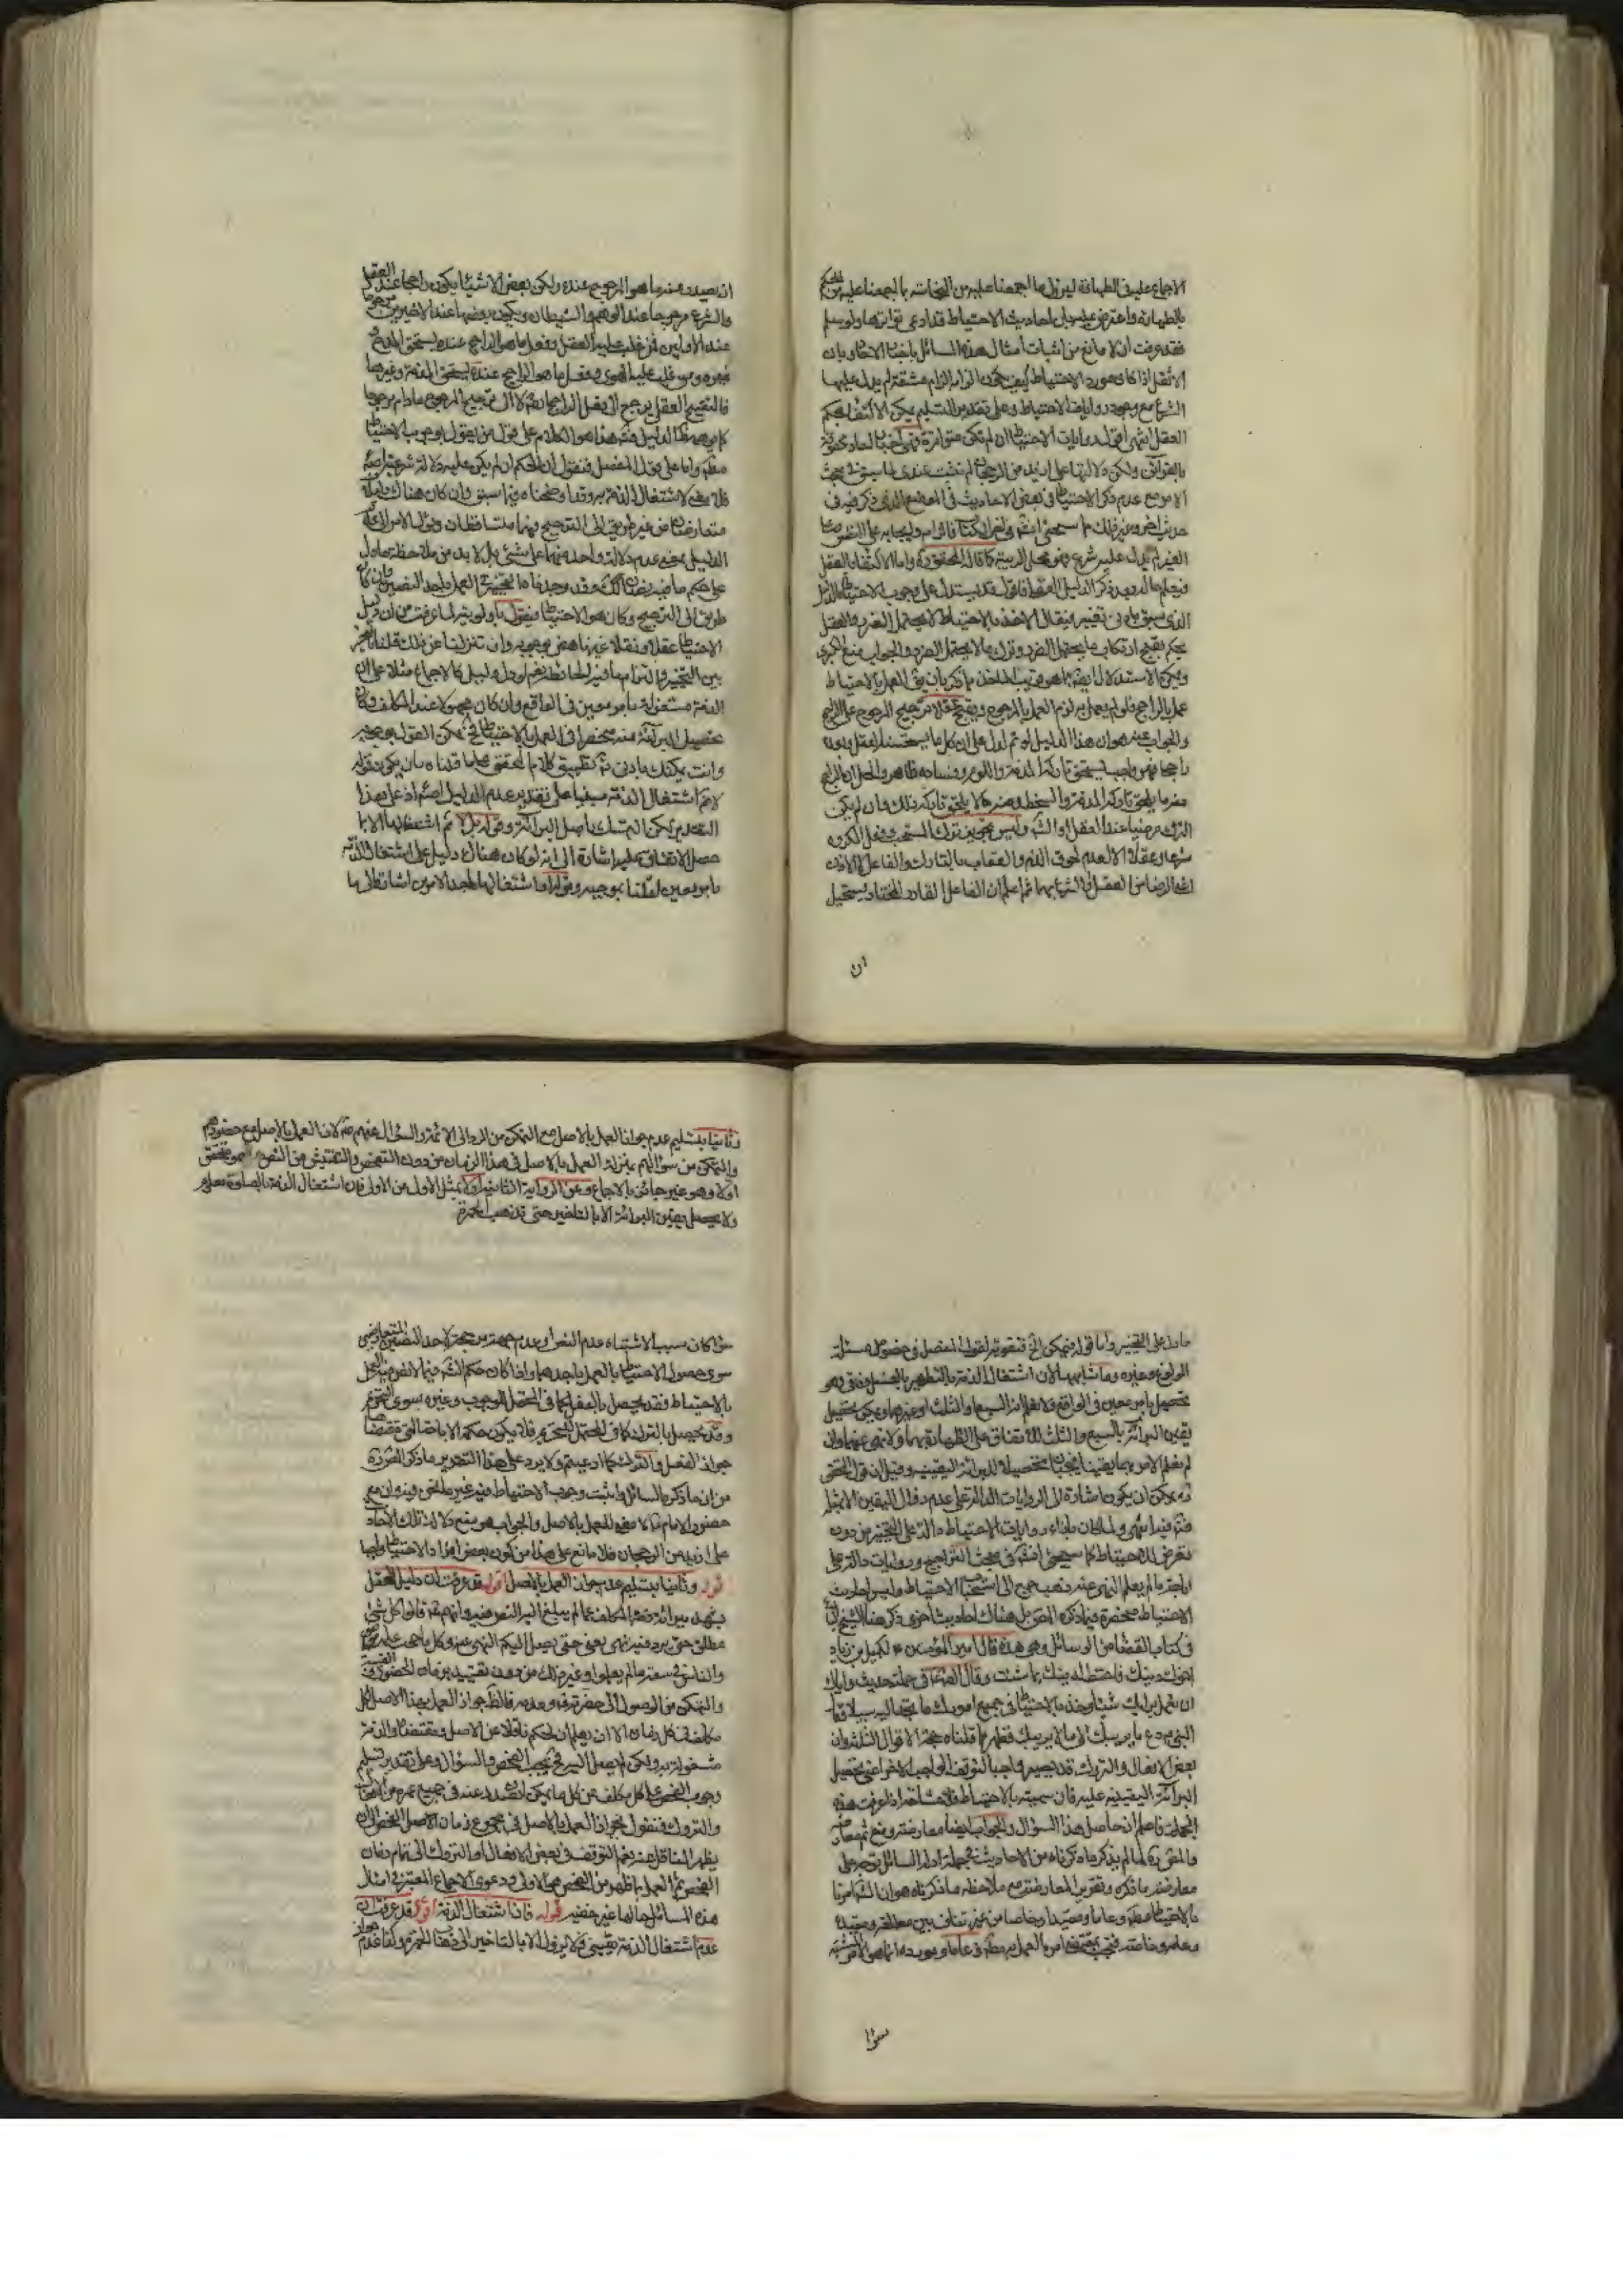 الاجماع عليه في الطهارة ليزول ما اجمعنا عليه من النجاسة بما اجمعنا عليه من الحكم
بالطهارة واعترض عليه بان احاديث الاحتياط قد ادعى تواترها ولو سلم
فقد عرفت ان لا مانع من اثبات امثال هذه المسائل باخبار الاحاد وبان
الاثقل اذا كان مورد الاحتياط كيف يكون الزام مشقة لم يدل عليها
الشرع مع وجود روايات الاحتياط وعلى تقدير التسليم يكن الاكتفاء بحكم
العقل انتهى اقول روايات الاحتياط ان لم تكن متواترة فهى اخبار احاد محفوفة
بالقرائن ولكن دلالتها على ازيد من الرجحان لم تثبت عندى لما سبق في بحث
الامر مع عدم ذكر الاحتياط في بعض الاحاديث في الموضع الذى ذكر فيه في
حديث اخر وغير ذلك مما سيجئ انشاء في اخر الكتاب فالزام
الغير لم يدل عليه شرع فهو محل الريبة كما قاله المحقق ره واما الاكتفاء بالعقل
فيعلم حاله بعد ذكر الدليل العقلى فاقول قد يستدل على وجوب الاحتياط بالدليل
الذى سبق بادنى تغيير فيقال الاخذ بالاحتياط لا يحتمل الضرر والعقل
يحكم بقبح ارتكاب ما يحتمل الضرر وترك ما لا يحتمل الضرر والجواب منع الكبرى
ويمكن الاستدلال ايضا بما هو قريب الماخذ مما ذكر بان يق العمل بالاحتياط
عمل بالراجح فلو لم يعمل به لزم العمل بالمرجوح ويقبح عقلا ترجيح المرجوح على الراجح
والجواب عنه هو ان هذا الدليل لو تم لدل على ان كل ما يستحسنه العقل ويراه
راجحا فهو واجب يستحق تاركه المذمة واللوم وفساده ظاهر والحل ان الراجح
منه ما يلحق تاركه المذمة والسخط ومنه ما لا يلحق تاركه ذلك وان لم يكن
الترك مرضيا عند العقل او الشرع وليس تجويز ترك المستحب وفعل المكروه
شرعا وعقلا الا لعدم لحوق الذم والعقاب بالتارك والفاعل لا لان
الرضا من العقل او الشرع بهما ثم اعلم ان الفاعل القادر المختار يستحيل
ان
ان يصدر منه ما هو المرجوح عنده ولكن بعض الاشياء يكون راجحا عند العقل
والشرع مرجوحا عند الوهم والشيطان ويكون بعضها عند الاخيرين مرجوحا
عند الاولين فمن غلب عليه العقل وفعل ما هو الراجح عنده يستحق المدح
غيره ومن غلب عليه الهوى وفعل ما هو الراجح عنده يستحق المذمة وغيرها
فالتقبيح العقلى يرجع الى فعل الراجحات لا الى ترجيح المرجوح مادام مرجوحا
كما يوهمه هذا الدليل هذا هو الكلام على قول من يقول بوجوب الاحتياط
مطلقا واما على قول المفصل فنقول ان الحكم ان لم يكن عليه دلالة شرعية اصلا
فلا معنى لاشتغال الذمة به وقد اوضحناه فيما سبق وان كان هناك دليلان
متعارضان من غير طريق الى الترجيح فهما متساقطان ويؤل الامر الى
الدليل بمعنى عدم دلالة واحد منهما على شئ بل لا بد من ملاحظة ما دل
على حكم ما فيه نصان كك فقد وجدناه التخيير في العمل باحد النصين وان كان
طريق الى الترجيح وكان هو الاحتياط فيقول باولويته لما عرفت من ان دليل
الاحتياط عقلا ونقلا غير ناهض بوجوبه وان تنزلنا عن ذلك قلنا بالتخيير
بين التخيير والتزام ما فيه الحائطة نعم لو دل دليل كالاجماع مثلا على ان
الذمة مشغولة بامر معين في الواقع وان كان مجهولا عند المكلف وكان
تحصيل البرائة منه منحصرا في العمل بالاحتياط فح يمكن القول بوجوبه
وانت يمكنك بادنى تامل تطبيق كلام المحقق على ما قلناه بان يكون قوله
لانم اشتغال الذمة مبنيا على تقدير عدم الدليل اصلا اذ على هذا
التقدير يمكن التمسك باصل البرائة وقوله بل لا نم اشتغالها الا بما
حصل الاتفاق عليه اشارة الى انه لو كان هناك دليل على اشتغال الذمة
بامر معين لقلنا بموجبه وقوله واشتغالها باحد الامرين اشارة الى ما
ما دل على التخيير واما قوله فيمكن الخ فتقوية لقول المفصل في خصوص مسئلة
الولوغ وغيره وما شابهها لان اشتغال الذمة بالتطهير بالغسل وفاقى وهو
تحصيل بامر معين في الواقع ولا نعلم انه السبع او الثلث او غيرهما ويمكن تحصيل
يقين البرائة بالسبع والثلث للاتفاق على الطهارة بهما ولا نهى عنهما وان
لم نعلم الامر بهما يقينا فيجبان تحصيلا للبرائة اليقينية وقيل ان قول المحقق
ره يمكن ان يكون اشارة الى الروايات الدالة على عدم زوال اليقين الا بمثله
فتدبر فيه انتهى ولما كان بناء روايات الاحتياط دالة على التخيير من دون
تعرض للاحتياط كما سيجئ انشاء في بحث التراجيح وروايات دالة على
اباحة ما لم يعلم النهى عنه ذهب جمع الى استحباب الاحتياط وليس احاديث
الاحتياط منحصرة فيما ذكره المص بل هناك احاديث اخرى ذكر منها الشيخ الحر
في كتاب القضا من الوسائل وهى هذه قال امير المؤمنين ع لكميل بن زياد
اخوك دينك فاحتط لدينك بما شئت وقال الصادق في جملة حديث واياك
ان تعمل برايك شيئا وخذ بالاحتياط في جميع امورك ما تجد اليه سبيلا وقال
النبي ص دع ما يريبك الى ما لا يريبك فظهر مما قلناه حجة الاقوال الثلثة وان
بعض الافعال والتروك قد يصير واجبا لتوقف الواجب الاخر اعنى تحصيل
البرائة اليقينية عليه فان سميته بالاحتياط فلا مشاحة اذا عرفت هذه
الجملة فاعلم ان حاصل هذا السؤال والجواب ايضا معارضة ومنع ثم معارضة
والمص ره لما لم يذكر ما ذكرناه من الاحاديث في جملة ادلة السائل توجه على
معارضته ما ذكره وتقرير المعارضة مع ملاحظة ما ذكرناه هو ان الشارع امرنا
بالاحتياط مطلقا وعاما ومقيدا وخاصا من غير تناف بين مطلقه ومقيده
وعامه وخاصه فيجب بمقتضى امره العمل به مطلقا وعاما ومورده انما هو الامر المشتبه
سواء
وثانيا بتسليم عدم جواز العمل بالاصل مع التمكن من الرد الى الائمة والسؤال عنهم لان العمل بالاصل مع حضورهم
والتمكن من سؤالهم بمنزلة العمل بالاصل في هذا الزمان من دون التفحص والتفتيش من النص هو متحقق
اولا وهو غير جائز بالاجماع وعن الرواية الثانية اولا بمثل الاول من الاولى فان اشتغال الذمة بالصلوة معلوم
ولا يحصل يقين البرائة الا بالتاخير حتى تذهب الحمرة
سواء كان سبب الاشتباه عدم النص او عدم جهة مرجحة لاحد النصين المتعارضين
سوى حصول الاحتياط بالعمل باحدهما واذا كان حكم الشرع فيما لا نص فيه العمل
بالاحتياط فقد يحصل بالفعل كما في المحتمل الوجوب وغيره سوى التحريم
وقد يحصل بالترك كما في المحتمل للتحريم فلا يكون حكمه الاباحة التي مقتضاها
جواز الفعل والترك كما ادعيتم ولا يرد على هذا التقرير ما ذكره المص ره
من ان ما ذكره السائل لو اثبت وجوب الاحتياط فيه غير ما نحن فيه وان مع
حضور الامام لا معنى للعمل بالاصل والجواب هو منع دلالة تلك الاحاد
على ازيد من الرجحان فلا مانع على هذا من كون بعض افراد الاحتياط واجبا
قوله وثانيا بتسليم عدم جواز العمل بالاصل اقول قد عرفت ان دليل العقل
يشهد ببرائة ذمة المكلف عما لم يبلغ اليه النص فيه وانهم ع قالوا كل شئ
مطلق حتى يرد فيه نهى يعنى حتى يصل اليكم النهى عنه وكل ما حجب علمه
والناس في سعة ما لم يعلموا وغير ذلك من دون تقييد بزمان الحضور والغيبة
والتمكن من الوصول الى حضرتهم وعدمه فالظ جواز العمل بهذا الاصل لكل
مكلف في كل زمان الا ان يعلم ان لحكم ناقلا عن الاصل ومقتضاه والذمة
مشغولة به ولكن لم يصل اليه فح يجب الفحص والسؤال وعلى تقدير تسليم
وجوب الفحص على كل مكلف عن كل ما يمكن ان يصدر عنه في جميع عمره من الافعال
والتروك فنقول بجواز العمل بالاصل في مجموع زمان الاصل الفحص الى ان
يظهر الناقل عنه نعم التوقف في بعض الافعال او التروك الى تمام زمان
الفحص ثم العمل بما ظهر من الفحص هو الاولى ودعوى الاجماع المعتبر في امثال
هذه المسائل حالها غير خفية قوله فان اشتغال الذمة اقول قد عرفت ان
عدم اشتغال الذمة يقينى ولا يزول الا بالتاخير الى ذهاب الحمرة وكذا عدم جواز